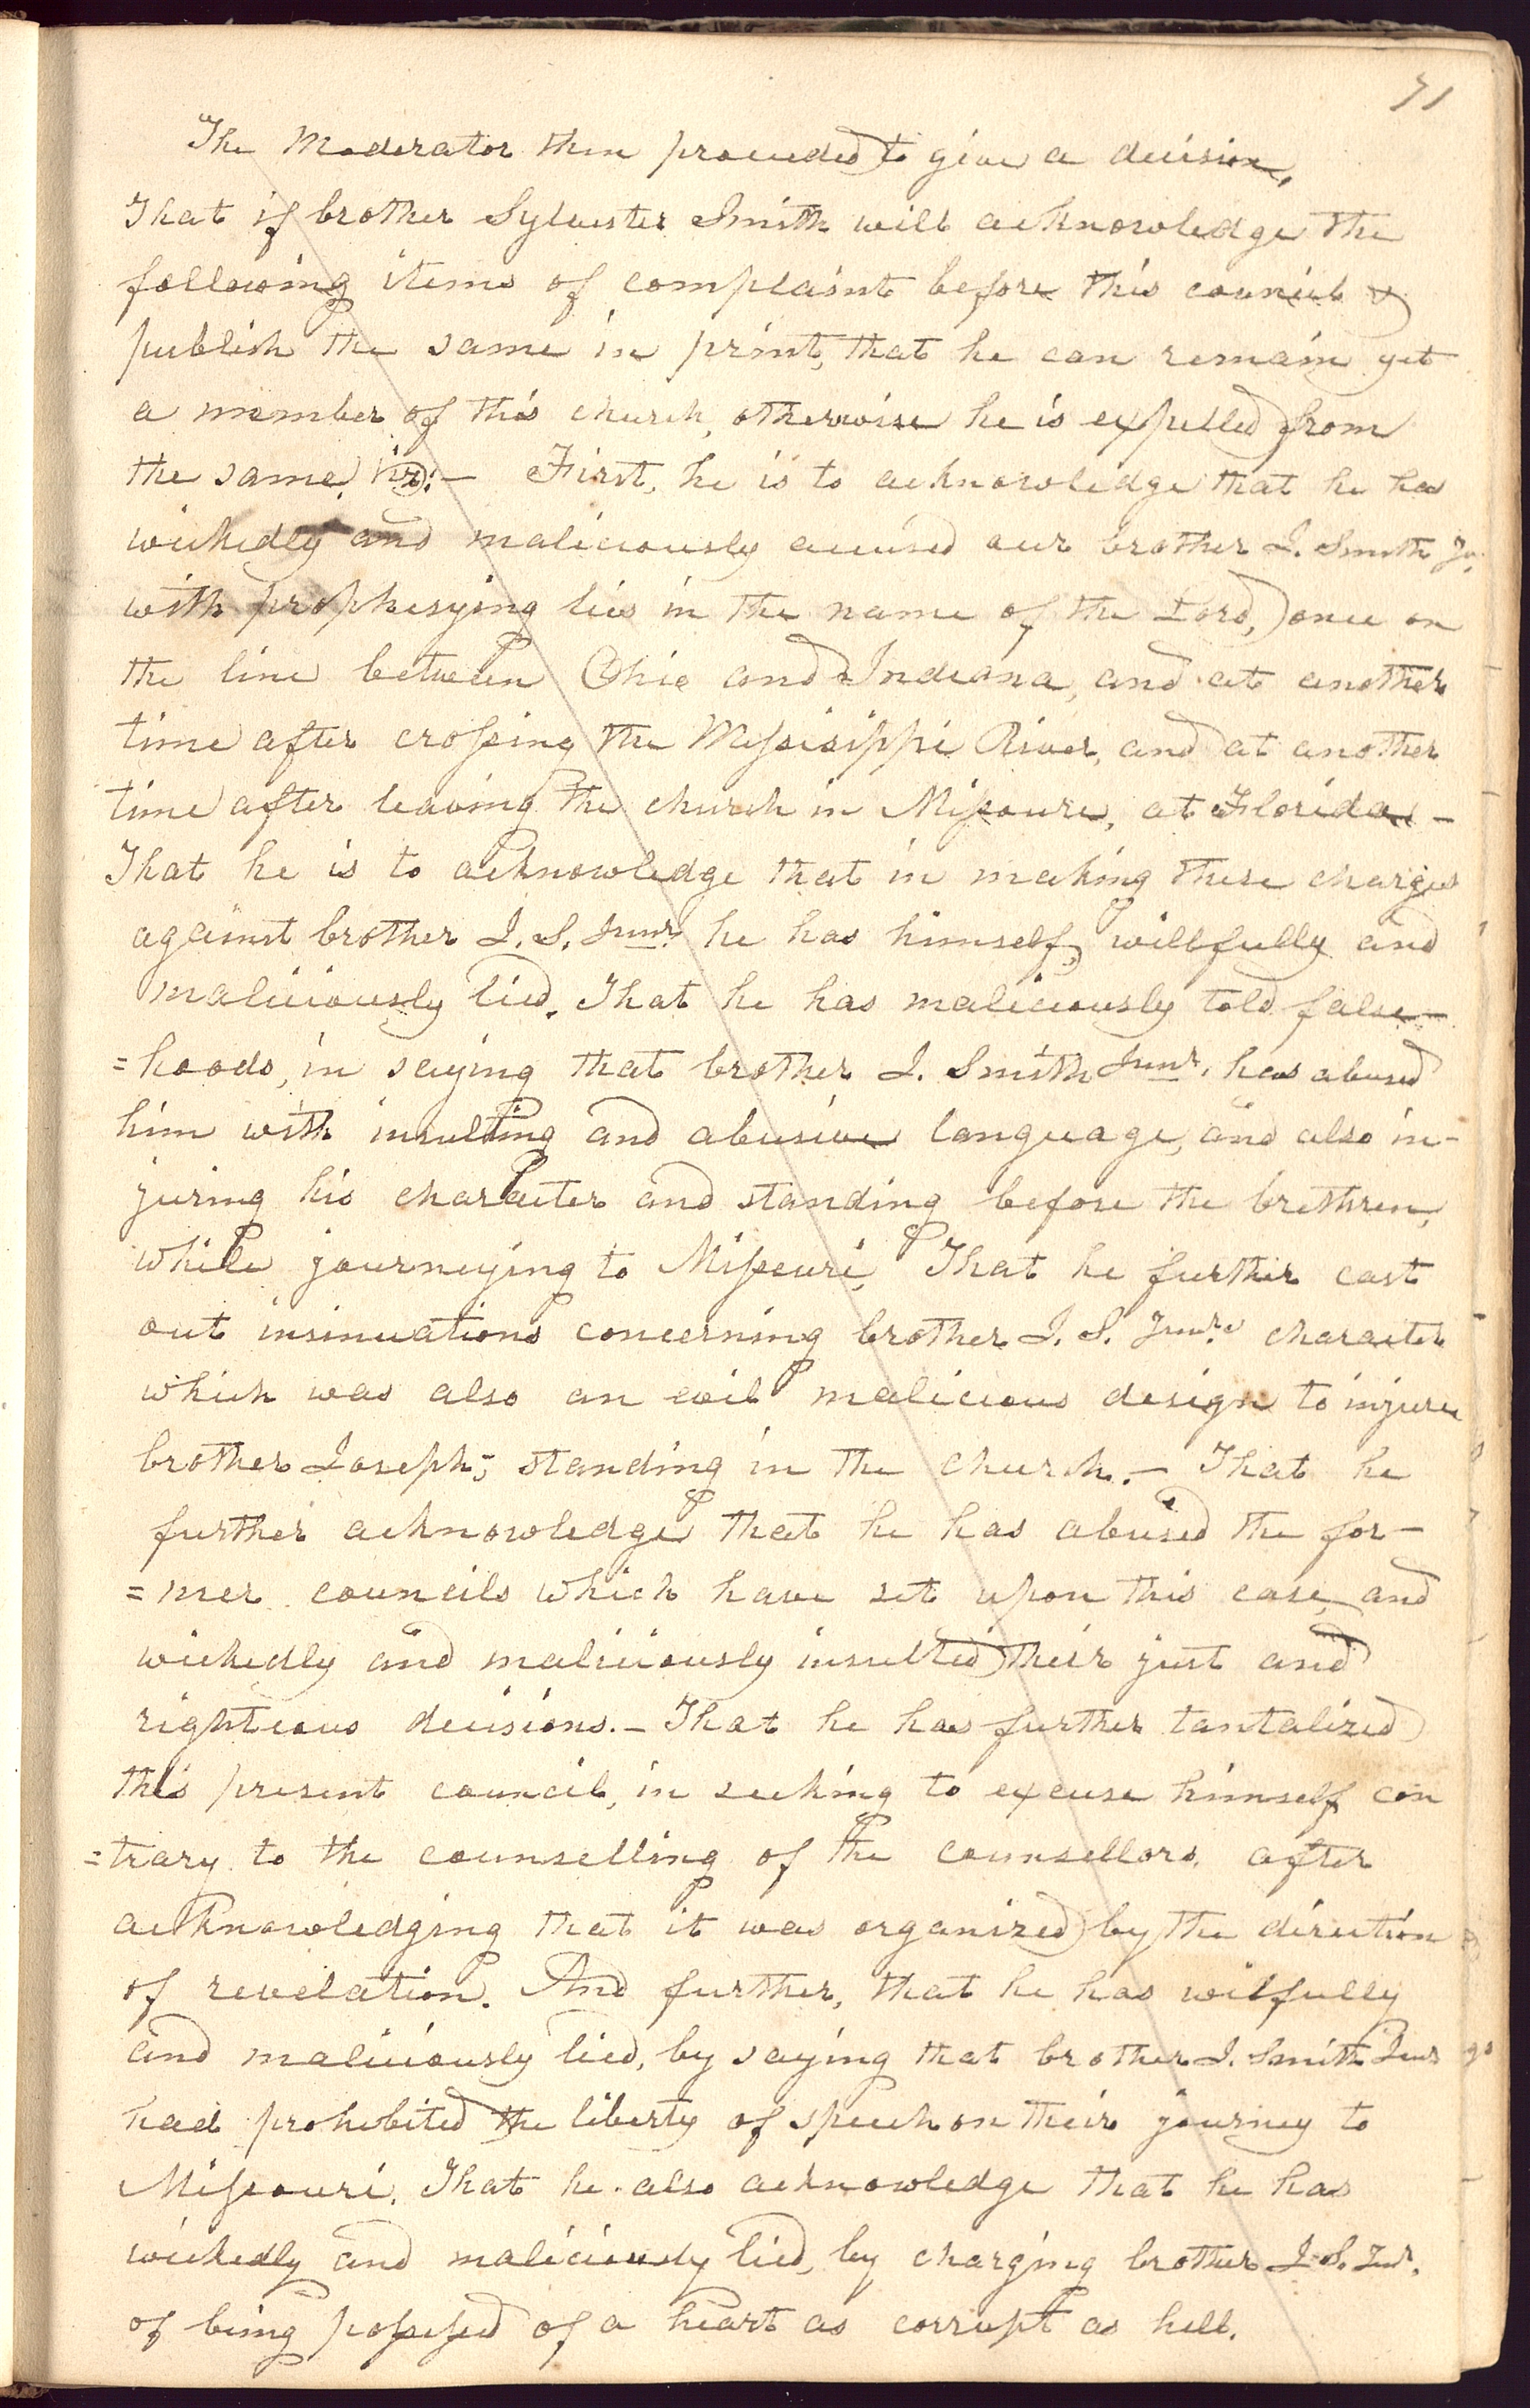 71
The Moderator then proceeded to give a decision,
That if brother Sylvester Smith will acknowledge the
following items of complaint before this council &
publish the same in print, that he can remain yet
a member of this church, otherwise he is expelled from
the same, viz:— First, he is to acknowledge that he has
wickedly and maliciously accused our brother J. Smith Jr.
with prophesying lies in the name of the Lord, once on
the line between Ohio and Indiana, and at another
time after crossing the Missisippi River, and at another
time after leaving the church in Missouri, at Florida—
That he is to acknowledge that in making these charges
against brother J. S. Junr. he has himself, willfully and
maliciously lied. That he has maliciously told false-
=hoods, in saying that brother J. Smith Junr. has abused
him with insulting and abusive language, and also in-
juring his character and standing before the brethren,
while journeying to Missouri, That he further cast
out insinuations concerning brother J. S. Junrs character
which was also an evil malicious design to injure
brother Joseph's standing in the church.— That he
further acknowledge that he has abused the for-
=mer councils which have set upon this case, and
wickedly and maliciously insulted their just and
righteous decisions.— That he has further tantalized
this present council, in seeking to excuse himself con
=trary to the counselling of the counsellors, after
acknowledging that it was organized by the direction
of revelation. And further, that he has wilfully
and maliciously lied, by saying that brother J. Smith Junr
had prohibited the liberty of speech on their journey to
Missouri. That he also acknowledge that he has
wickedly and maliciously lied, by charging brother J. S. Jur.
of being possessed of a heart as corrupt as hell.